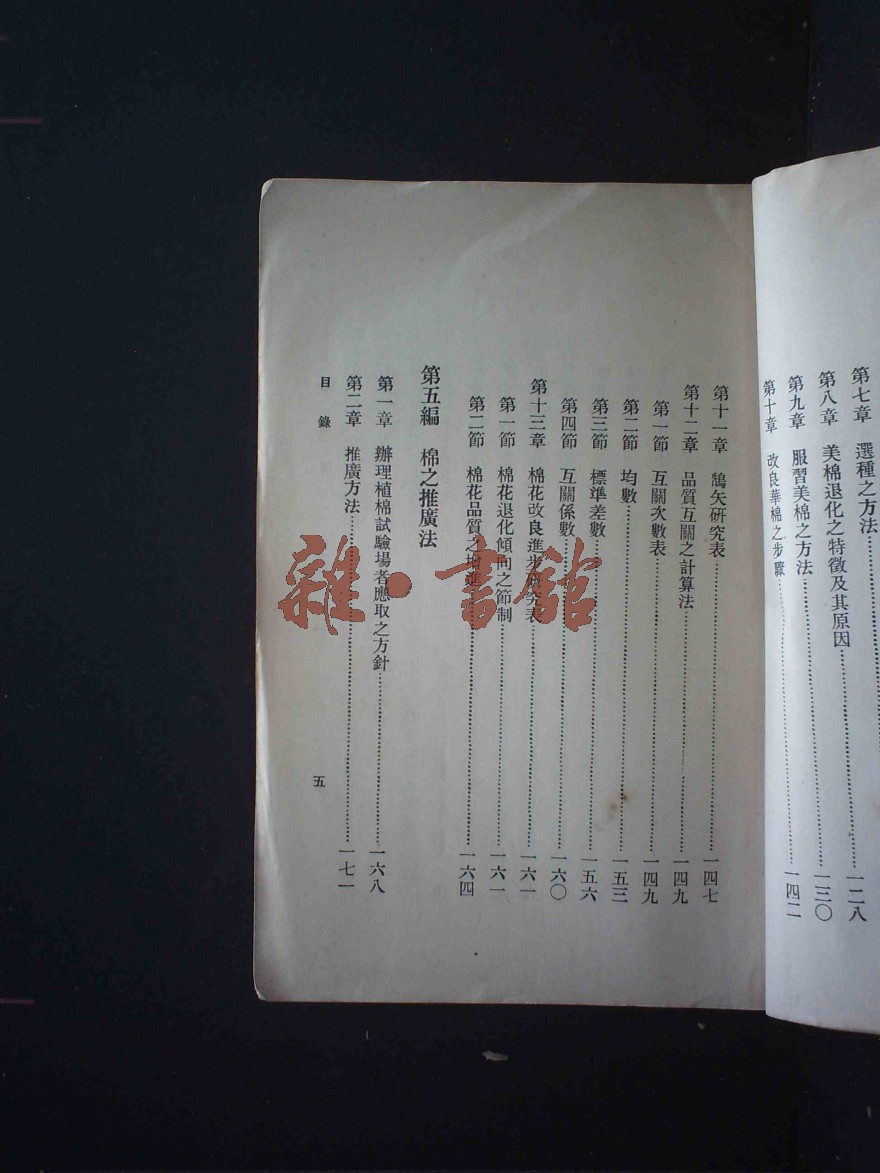 第七章　選種之方法………一二八
第八章　美棉退化之特徵及其原因………一三〇
第九章　服習美棉之方法………
第十章　改良華棉之步驟………一四二
第十一章　鵠矢研究表………一四七
第十二章　品質互關之計算法………一四九
第一節　互關次數表………一四九
第二節　均數………一五三
第三節　標準差數………一五六
第四節　互關係數………一六〇
第十三章　棉花改良進步研究表………一六一
第一節　棉花退化傾向之節制………一六一
第二節　棉花品質之增進………一六四
第五編　棉之推廣法
第一章　辦理植棉試驗場者應取之方針………一六八
第二章　推廣方法………一七一
目錄
五
雜·書館